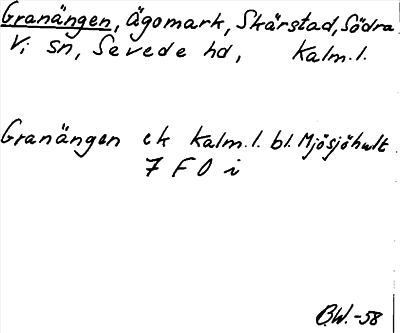 Granängen, Ägomark, Skärstad, Södra
Vi sn, Sevede hd, Kalm.l.
Granängen ek Kalm.l. bl. Mjösjöhult
7 F 0 i
B.W.-58